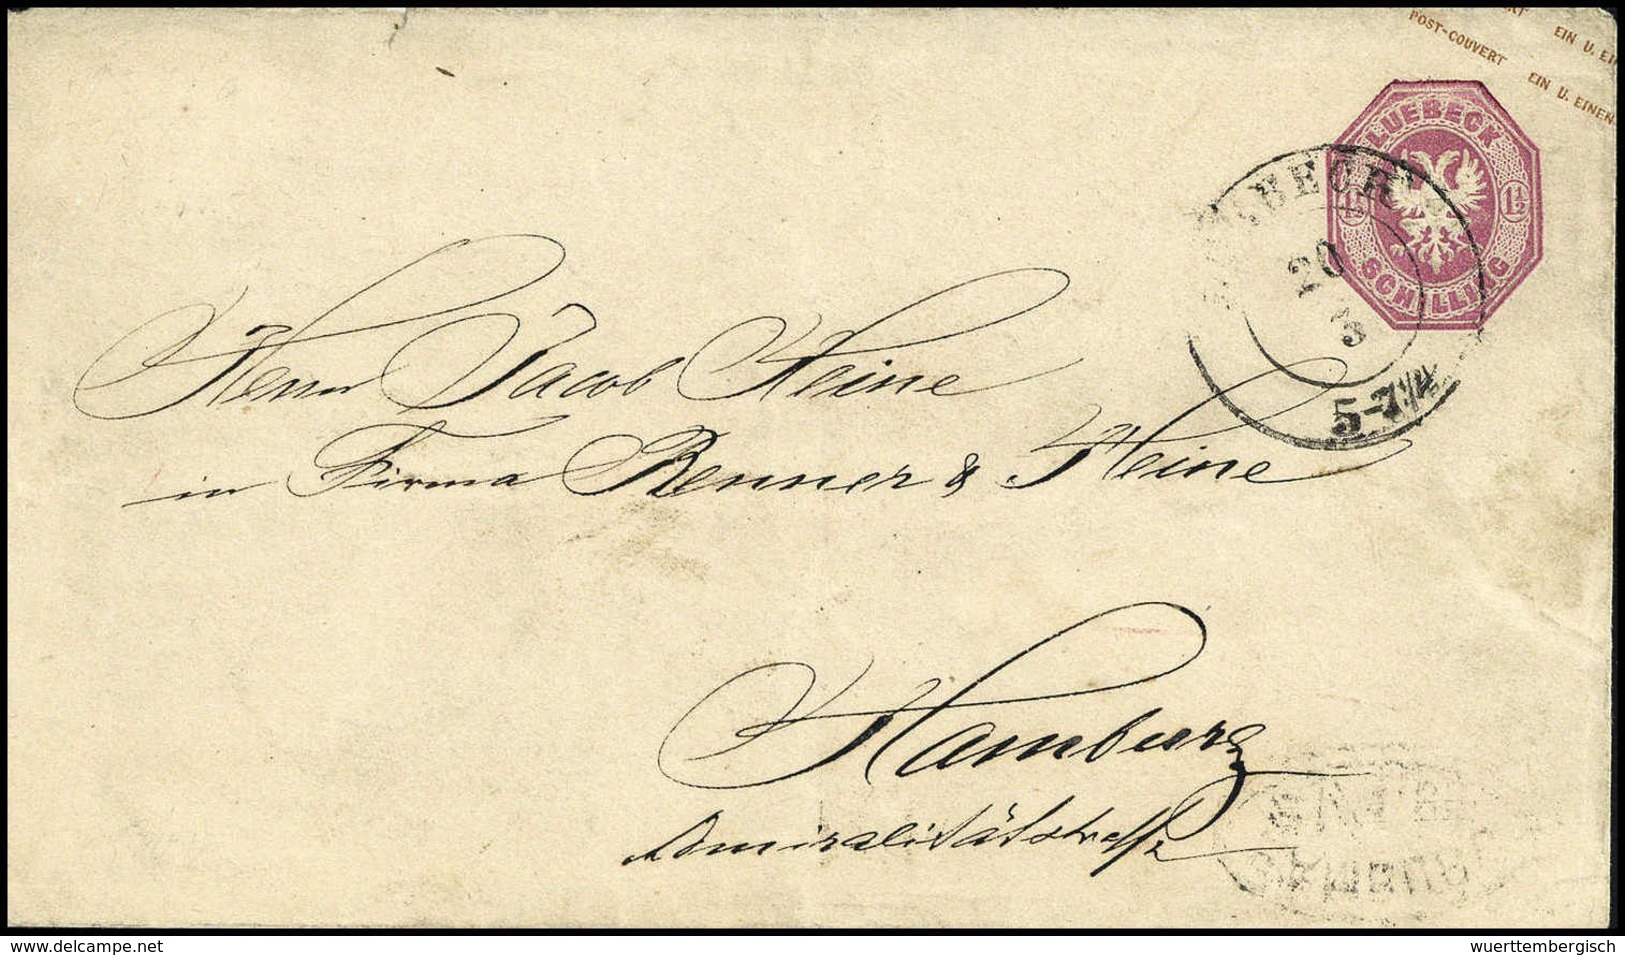 POST-COUVERT EIN U. EINEN
EIN U. EI
LUEBECK
1½ 1½
SCHILLING
20
3
Herrn Jacob Heine
in Firma Renner & Heine
Hamburg
Admiralitätstraße
www.delcampe.net
wuerttembergisch